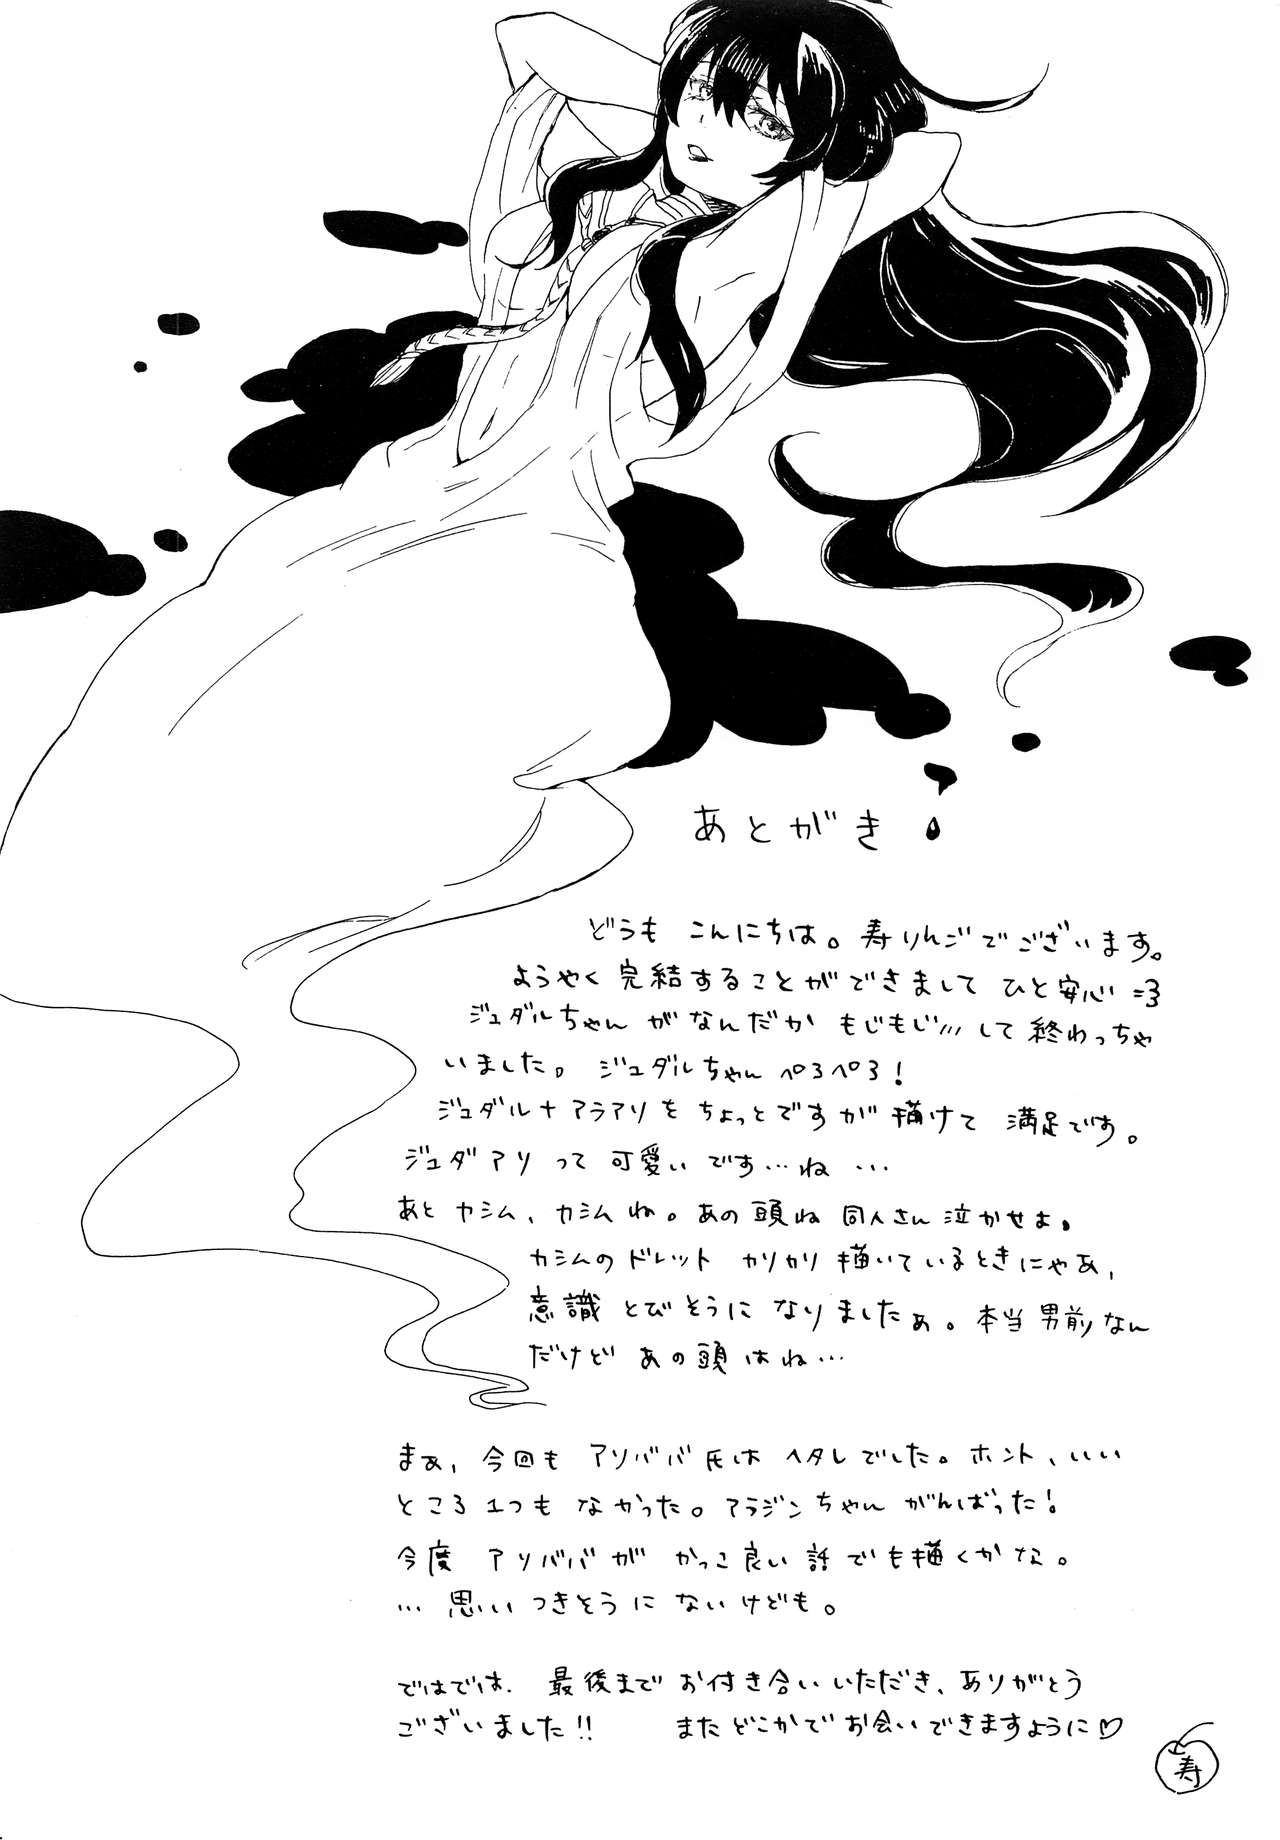 あとがき
どうも こんにちは。寿りんごでございます。
ようやく 完結することができまして ひと安心 =3
ジュダルちゃん がなんだか もじもじ///して終わっちゃ
いました。ジュダルちゃん ペろペろ!
ジュダル+アラアリを ちょっとですが 描けて 満足です。
ジュダアリ って 可愛いです…ね…
あと カシム、カシムね。あの頭ね 同人さん泣かせよ。
カシムのドレット カリカリ 描いているときにゃあ、
意識 とびそうに なりましたぁ。本当 男前なん
だけど あの頭はね…
まぁ、今回も アリババ氏は ヘタレでした。ホント、いい
ところ 1つも なかった。アラジンちゃん がんばった!
今度 アリババが かっこ良い話でも描くかな。
… 思い つきそうに ないけども。
ではでは、最後まで お付き合いいただき、ありがとう
ございました!! またどこかで お会いできますように♡
寿